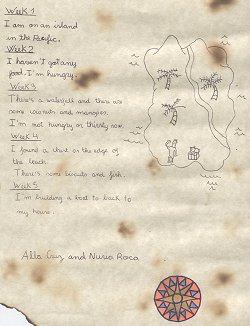 Week 1
I am on an island
in the Pacific.
Week 2
I haven't got any
food. I'm hungry.
Week 3
There's a waterfall and there are
some coconuts and mangoes.
I'm not hungry or thirsty now.
Week 4
I found a chest on the edge of
the beach.
There's some biscuits and fish.
Week 5
I'm building a boat to back to
my house.
Alla Cruz and Nuria Roca